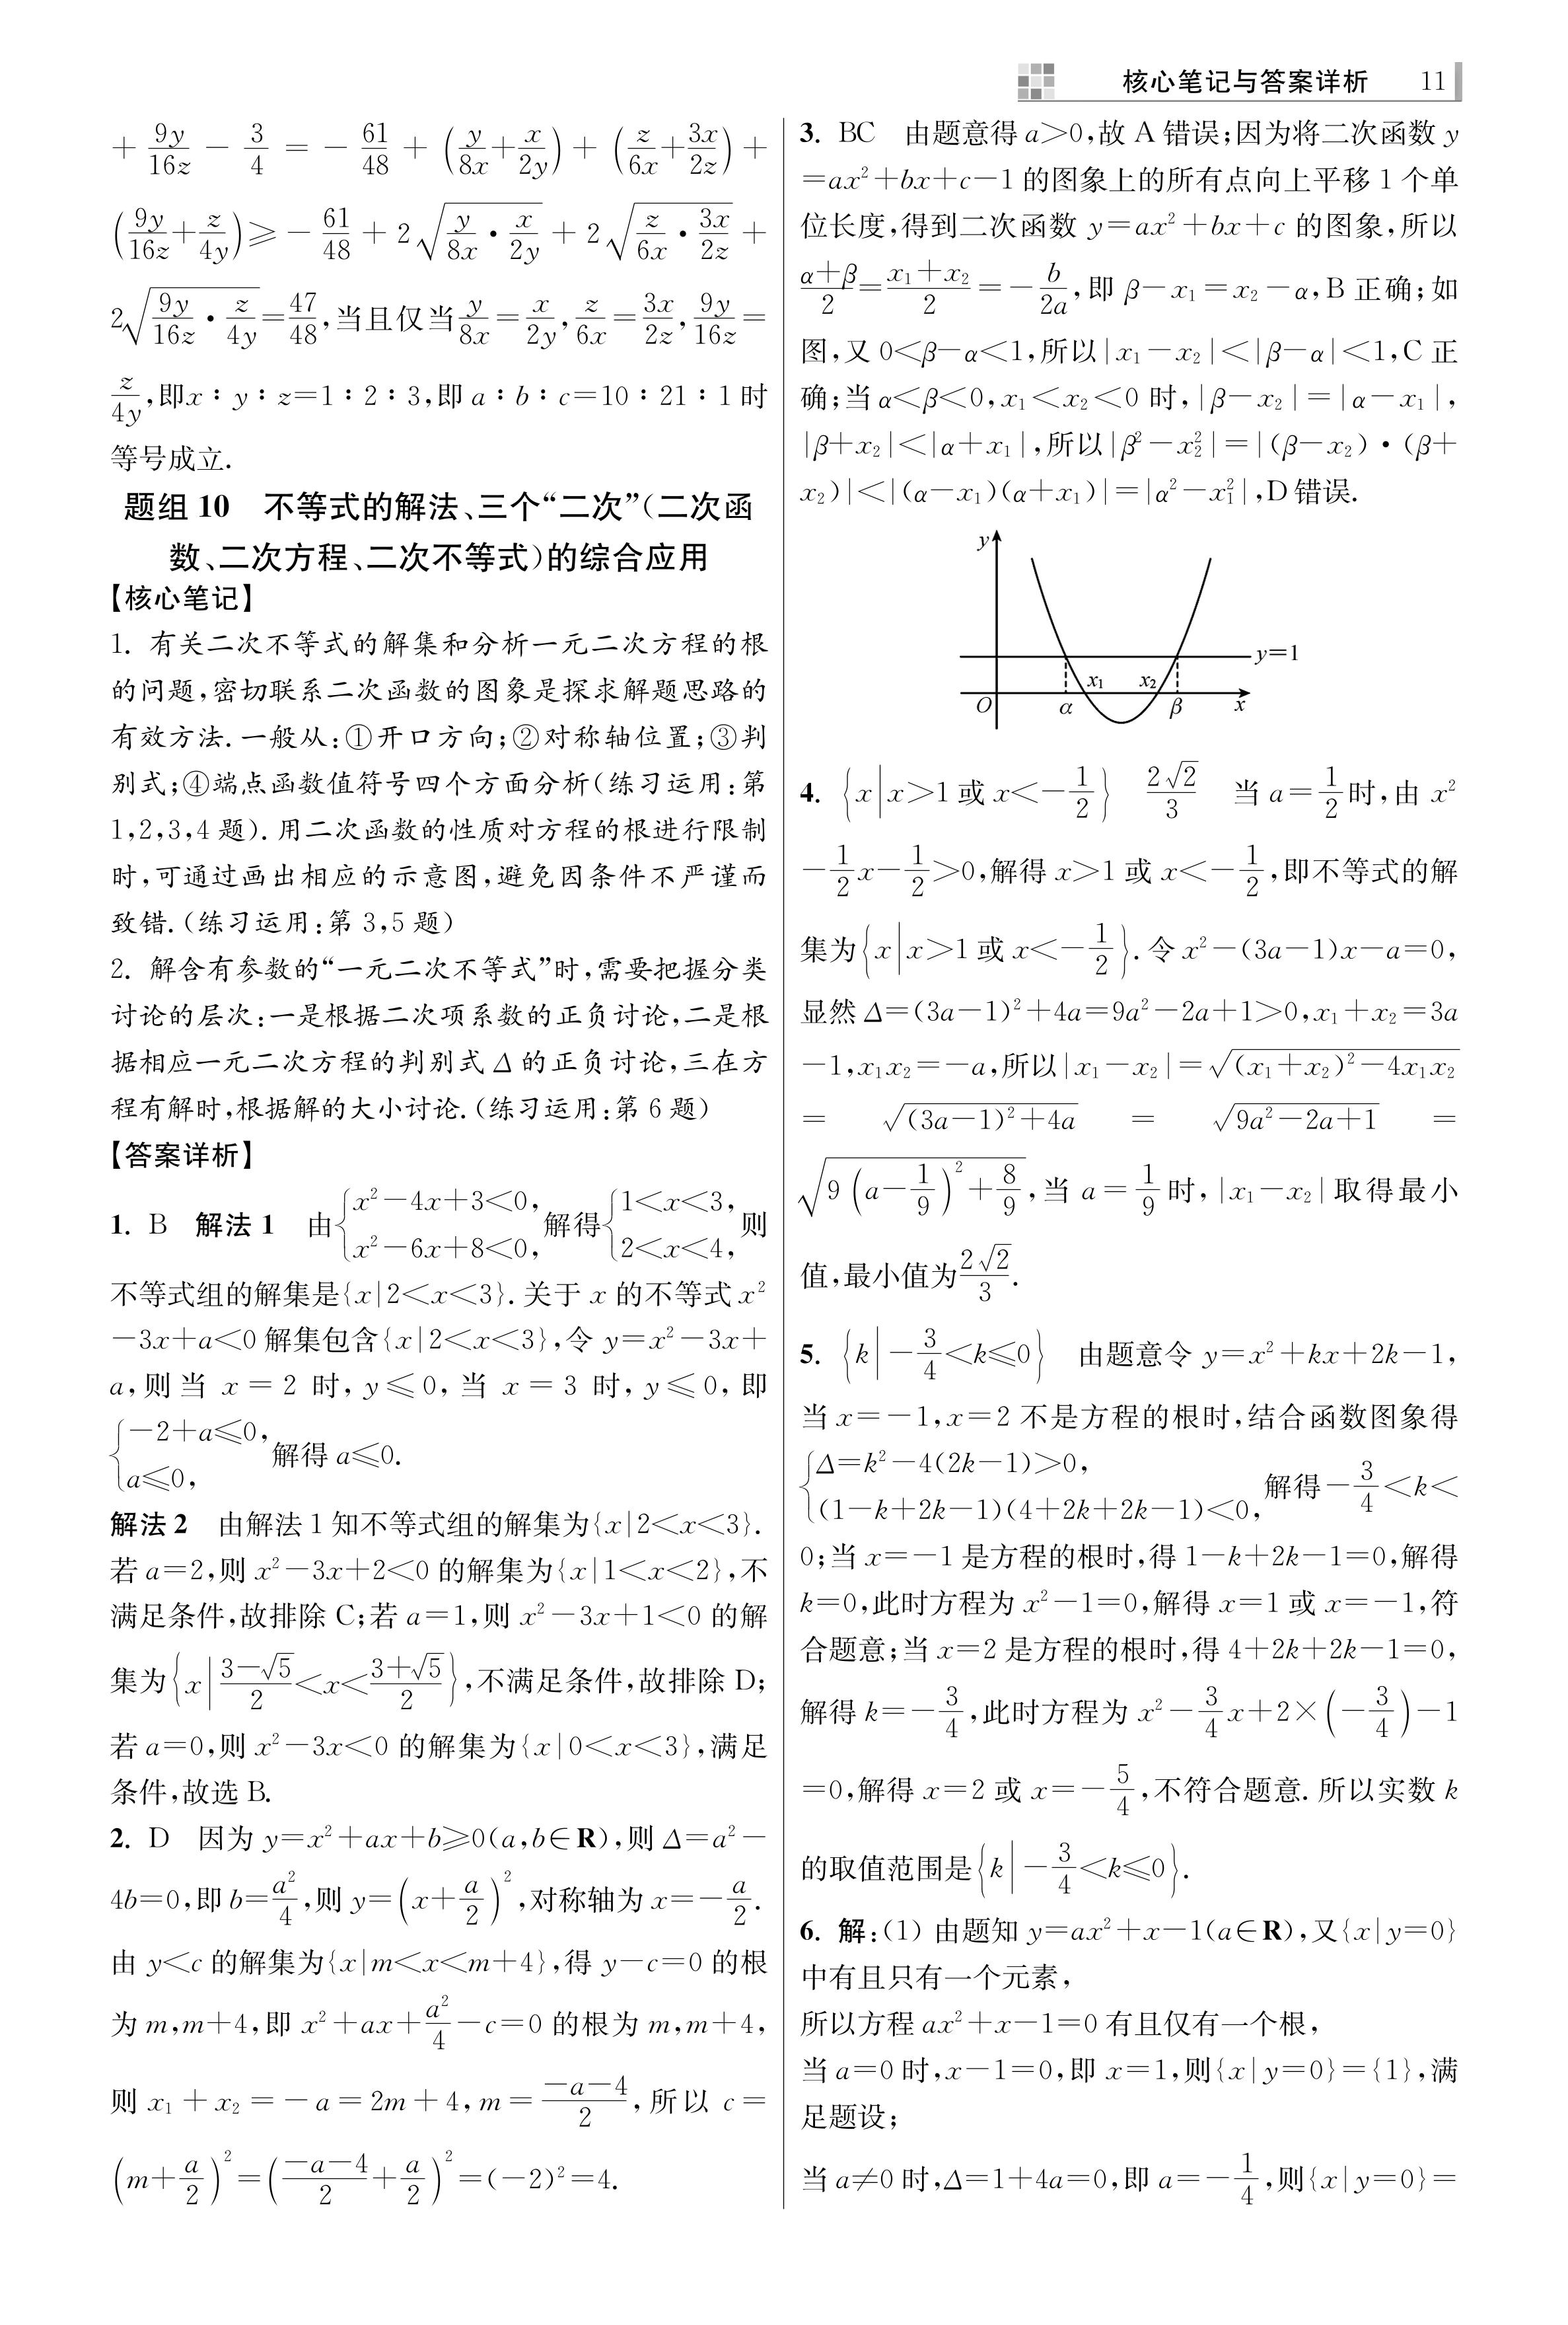 核心笔记与答案详析 11
+ 9y/16z - 3/4 = - 61/48 + (y/8x + x/2y) + (z/6x + 3x/2z) +
(9y/16z + z/4y) ≥ - 61/48 + 2√(y/8x · x/2y) + 2√(z/6x · 3x/2z) +
2√(9y/16z · z/4y) = 47/48,当且仅当 y/8x = x/2y, z/6x = 3x/2z, 9y/16z =
z/4y,即x∶y∶z=1∶2∶3,即a∶b∶c=10∶21∶1时
等号成立.
题组10 不等式的解法、三个“二次”(二次函
数、二次方程、二次不等式)的综合应用
【核心笔记】
1. 有关二次不等式的解集和分析一元二次方程的根
的问题,密切联系二次函数的图象是探求解题思路的
有效方法.一般从:①开口方向;②对称轴位置;③判
别式;④端点函数值符号四个方面分析(练习运用:第
1,2,3,4题).用二次函数的性质对方程的根进行限制
时,可通过画出相应的示意图,避免因条件不严谨而
致错.(练习运用:第3,5题)
2. 解含有参数的“一元二次不等式”时,需要把握分类
讨论的层次:一是根据二次项系数的正负讨论,二是根
据相应一元二次方程的判别式Δ的正负讨论,三在方
程有解时,根据解的大小讨论.(练习运用:第6题)
【答案详析】
1. B 解法1 由{x²-4x+3<0, x²-6x+8<0,解得{1<x<3, 2<x<4,则
不等式组的解集是{x|2<x<3}.关于x的不等式x²
-3x+a<0解集包含{x|2<x<3},令y=x²-3x+
a,则当x=2时,y≤0,当x=3时,y≤0,即
{-2+a≤0, a≤0,解得a≤0.
解法2 由解法1知不等式组的解集为{x|2<x<3}.
若a=2,则x²-3x+2<0的解集为{x|1<x<2},不
满足条件,故排除C;若a=1,则x²-3x+1<0的解
集为{x|(3-√5)/2<x<(3+√5)/2},不满足条件,故排除D;
若a=0,则x²-3x<0的解集为{x|0<x<3},满足
条件,故选B.
2. D 因为y=x²+ax+b≥0(a,b∈R),则Δ=a²-
4b=0,即b=a²/4,则y=(x+a/2)²,对称轴为x=-a/2.
由y<c的解集为{x|m<x<m+4},得y-c=0的根
为m,m+4,即x²+ax+a²/4-c=0的根为m,m+4,
则x₁+x₂=-a=2m+4,m=(-a-4)/2,所以c=
(m+a/2)²=((-a-4)/2+a/2)²=(-2)²=4.
3. BC 由题意得a>0,故A错误;因为将二次函数y
=ax²+bx+c-1的图象上的所有点向上平移1个单
位长度,得到二次函数y=ax²+bx+c的图象,所以
(α+β)/2=(x₁+x₂)/2=-b/2a,即β-x₁=x₂-α,B正确;如
图,又0<β-α<1,所以|x₁-x₂|<|β-α|<1,C正
确;当α<β<0,x₁<x₂<0时,|β-x₂|=|α-x₁|,
|β+x₂|<|α+x₁|,所以|β²-x₂²|=|(β-x₂)·(β+
x₂)|<|(α-x₁)(α+x₁)|=|α²-x₁²|,D错误.
y
y=1
x₁ x₂
O α β x
4. {x|x>1或x<-1/2} 2√2/3 当a=1/2时,由x²
-1/2x-1/2>0,解得x>1或x<-1/2,即不等式的解
集为{x|x>1或x<-1/2}.令x²-(3a-1)x-a=0,
显然Δ=(3a-1)²+4a=9a²-2a+1>0,x₁+x₂=3a
-1,x₁x₂=-a,所以|x₁-x₂|=√((x₁+x₂)²-4x₁x₂)
=√((3a-1)²+4a)=√(9a²-2a+1)=
√(9(a-1/9)²+8/9),当a=1/9时,|x₁-x₂|取得最小
值,最小值为2√2/3.
5. {k|-3/4<k≤0} 由题意令y=x²+kx+2k-1,
当x=-1,x=2不是方程的根时,结合函数图象得
{Δ=k²-4(2k-1)>0, (1-k+2k-1)(4+2k+2k-1)<0,解得-3/4<k<
0;当x=-1是方程的根时,得1-k+2k-1=0,解得
k=0,此时方程为x²-1=0,解得x=1或x=-1,符
合题意;当x=2是方程的根时,得4+2k+2k-1=0,
解得k=-3/4,此时方程为x²-3/4x+2×(-3/4)-1
=0,解得x=2或x=-5/4,不符合题意.所以实数k
的取值范围是{k|-3/4<k≤0}.
6. 解:(1)由题知y=ax²+x-1(a∈R),又{x|y=0}
中有且只有一个元素,
所以方程ax²+x-1=0有且仅有一个根,
当a=0时,x-1=0,即x=1,则{x|y=0}={1},满
足题设;
当a≠0时,Δ=1+4a=0,即a=-1/4,则{x|y=0}=